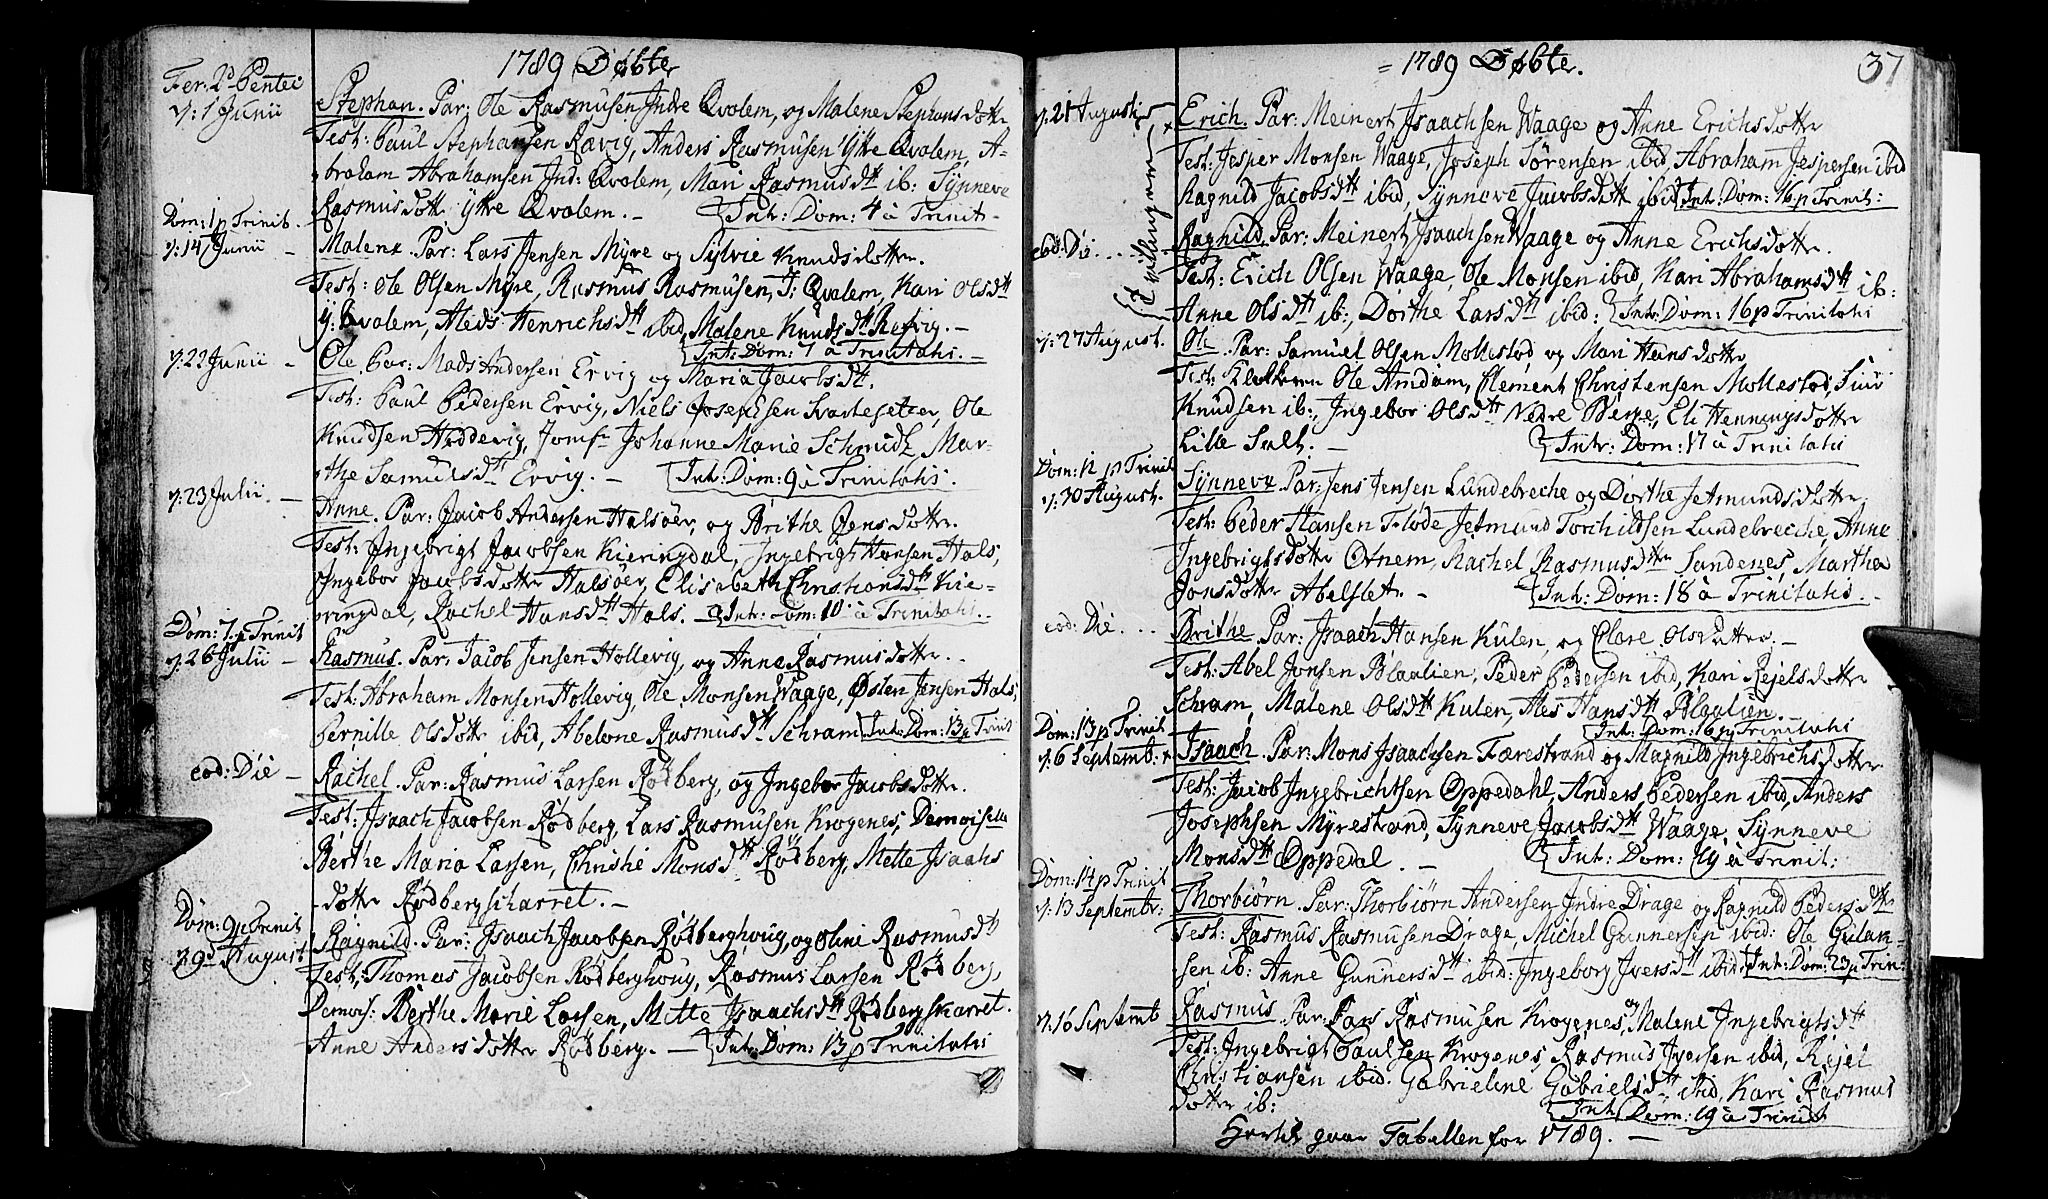 1789 Døbte
Fer: 2d Pentec
d: 1 Junii
Stephan. Par: Ole Rasmusen Indre Qvalem, og Malene Stephansdotter
Test: Paul Stephansen Ravig, Anders Rasmusen Ytre Qvalem, A-
braham Abrahamsen Ind: Qvalem, Mari Rasmusdtt ib: Synneve
Rasmusdotter Ytre Qvalem. - Int: Dom: 4 à Trinit-
Dom: 1 p Trinit.
d: 14 Junii -
Malene Par: Lars Jensen Myre og Sylvie Knudsdotter.
Test: Ole Olsen Myre, Rasmus Rasmusen, I: Qvalem, Kari Olsdtt
Y: Qvalem, Aleds Henrichsdtt ibid, Malene Knudsdtt Refvig. -
Int: Dom: 7 à Trinitatis. -
d: 22 Junii -
Ole Par: Mads Andersen Ervig og Maria Jacobsdtt.
Test: Paul Pedersen Ervig, Niels Josephsen Svartesetter, Ole
Knudsen Haddevig, Jomfr Johanne Marie Schmidt, Mar-
the Samuelsdtt Ervig. - Int: Dom: 9 à Trinitatis.
d: 23 Julii. -
Anne. Par: Jacob Andersen Halsøer, og Brithe Jensdotter.
Test: Ingebrigt Jacobsen Kieringdal, Ingebrigt Hansen Hals,
Ingebor Jacobsdotter Halsøer, Elisabeth Christiansdtt Kie-
ringdal, Rachel Hansdtt Hals. - Int: Dom: 10 à Trinitatis.
Dom: 7 p Trinit
d: 26 Julii -
Rasmus. Par: Jacob Jensen Hollevig, og Anne Rasmusdotter.
Test: Abraham Monsen Hollevig, Ole Monsen Waage, Østen Jensen Hals,
Pernille Olsdotter ibid, Abelone Rasmusdtt Schram Int: Dom: 13 p Trinit
eod: Die -
Rachel. Par: Rasmus Larsen Rødberg, og Ingebor Jacobsdotter.
Test: Isaach Jacobsen Rødberg, Lars Rasmusen Krogenes, Demoiselle
Berthe Maria Larsen, Christi Monsdtt Rødberg, Mette Isaachs
dotter Rødbergskarret. -
Dom: 9 p Trinit
d. 9d August
Ragnild. Par: Isaach Jacobsen Rødberghoug, og Oline Rasmusdtt
Test: Thomas Jacobsen Rødberghoug, Rasmus Larsen Rødberg,
Demois: Berthe Marie Larsen, Mette Isaachsdtt Rødbergskarret.
Anne Andersdotter Rødberg. - Int: Dom: 13 p Trinitatis
= 1789 Døbte.
37
d. 21 Augusti
Tvillinger
Erich. Par: Meinert Isaachsen Waage og Anne Erichsdotter
Test: Jesper Monsen Waage, Joseph Sørensen ibid, Abraham Jespersen ibid
Ragnild Jacobsdtt ibid, Synneve Jacobsdott ibid Int: Dom: 16 p Trinit:
eod: Die....
Raghild. Par: Meinert Isaachsen Waage og Anne Erichsdotter.
Test: Erich Olsen Waage, Ole Monsen ibid, Kari Abrahamsdtt ib:
Anne Olsdtt ib:, Dorthe Larsdtt ibid: Int: Dom: 16 p Trinitatis
d: 27 August.
Ole. Par: Samuel Olsen Mollestad og Mari Hansdotter
Test: Klokkeren Ole Amdam, Clement Christensen Mollestad, Siur
Knudsen ib:, Ingebor Olsdtt Nedre Berge, Eli Henningsdotter
Lille Salt. - Int: Dom: 17 à Trinitatis
Dom: 12 p Trinit
d. 30 August.
Synneve Par: Jens Jensen Lundebreche og Dorthe Jetmundsdotter.
Test: Peder Hansen Fløde, Jetmund Torchildsen Lundebreche, Anne
Ingebrigtsdotter Ørnem, Rachel Rasmusdtter Sandenes, Marthe
Jonsdotter Abelset - Int: Dom: 18 à Trinitatis. -
eod: Die....
Brithe Par: Isaach Hansen Kulen, og Clare Olsdotter. -
Test: Abel Jonsen Blaalien, Peder Pedersen ibid, Kari Rejelsdotter
Schram, Malene Olsdtt Kulen, Ales Hansdtt Blaalien.
Int: Dom: 16 p Trinitatis
Dom: 13 p Trinit
d. 6 Septembr:
Isaach. Par: Mons Isaachsen Færestrand og Magnild Ingebrichsdotter
Test: Jacob Ingebrichtsen Oppedahl, Anders Pedersen ibid, Anders
Josephsen Myrestrand, Synneve Jacobsdtt Waage, Synneve
Monsdtt Oppedal. - Int: Dom: 19 à Trinit:
Dom: 14 p Trinit
d: 13 Septembr:
Thorbiørn. Par: Thorbiørn Andersen Indre Drage og Ragnild Pedersdtt
Test: Rasmus Rasmusen Drage, Michel Gunnersen ibid: Ole Gulam-
sen ib: Anne Gunnersdtt ibid: Ingeborg Iversdtt ibid Int: Dom: 23 p Trin:
d. 16 Septemb
Rasmus. Par: Lars Rasmusen Krogenes, og Malene Ingebrigtsdtt
Test: Ingebrigt Paulsen Krogenes, Rasmus Iversen ibid, Rejel
Christiansen ibid. Gabrieline Gabrielsdtt ibid, Kari Rasmus
dotter ib: Int Dom: 19 à Trinit
Hertil gaar Tabellen for 1789. -